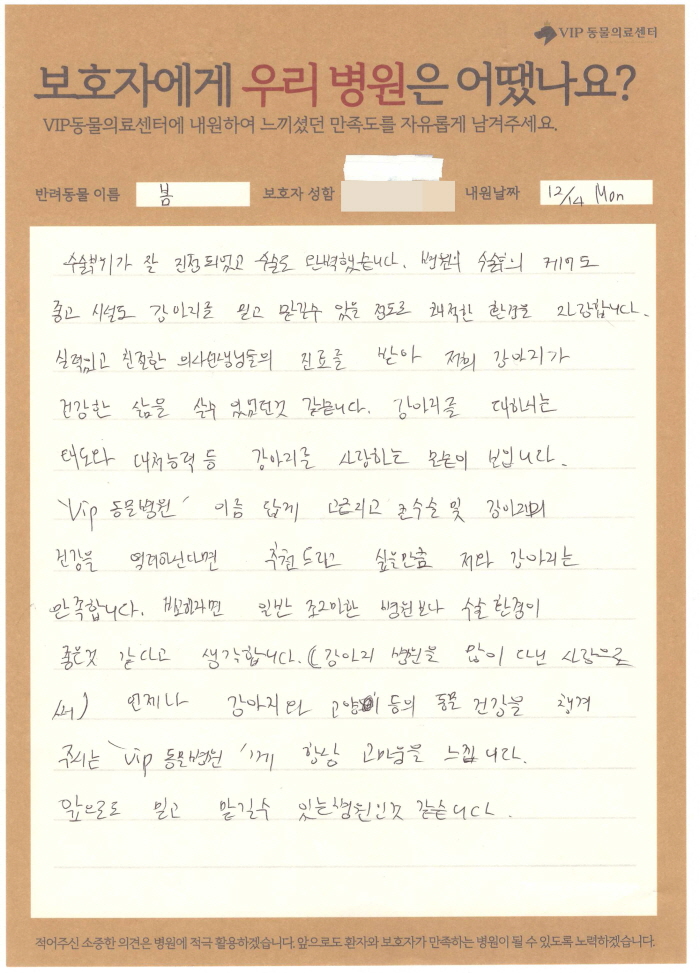 VIP 동물의료센터
보호자에게 우리 병원은 어땠나요?
VIP동물의료센터에 내원하여 느끼셨던 만족도를 자유롭게 남겨주세요.
반려동물 이름 봄 보호자 성함 내원날짜 12/14 Mon
수술부위가 잘 진정되었고 수술도 완벽했습니다. 병원의 수술후의 케어도
좋고 시설도 강아지를 믿고 맡길수 있을 정도로 쾌적한 환경을 자랑합니다.
실력있고 친절한 의사선생님들의 진료를 받아 저희 강아지가
건강한 삶을 살수 있었던것 같습니다. 강아지를 대하시는
태도와 대처능력 등 강아지를 사랑하는 모습이 보입니다.
"Vip 동물병원" 이름 답게 고퀄리고 수술 및 강아지의
건강을 염려하신다면 추천드리고 싶을만큼 저와 강아지는
만족합니다. 비교하자면 일반 조그마한 병원보다 수술 환경이
좋은것 같다고 생각합니다. (강아지 병원을 많이 다닌 사람으로
써) 언제나 강아지와 고양이 등의 동물 건강을 챙겨
주시는 "Vip 동물병원"께 항상 고마움을 느낍니다.
앞으로도 믿고 맡길수 있는병원인것 같습니다.
적어주신 소중한 의견은 병원에 적극 활용하겠습니다. 앞으로도 환자와 보호자가 만족하는 병원이 될 수 있도록 노력하겠습니다.